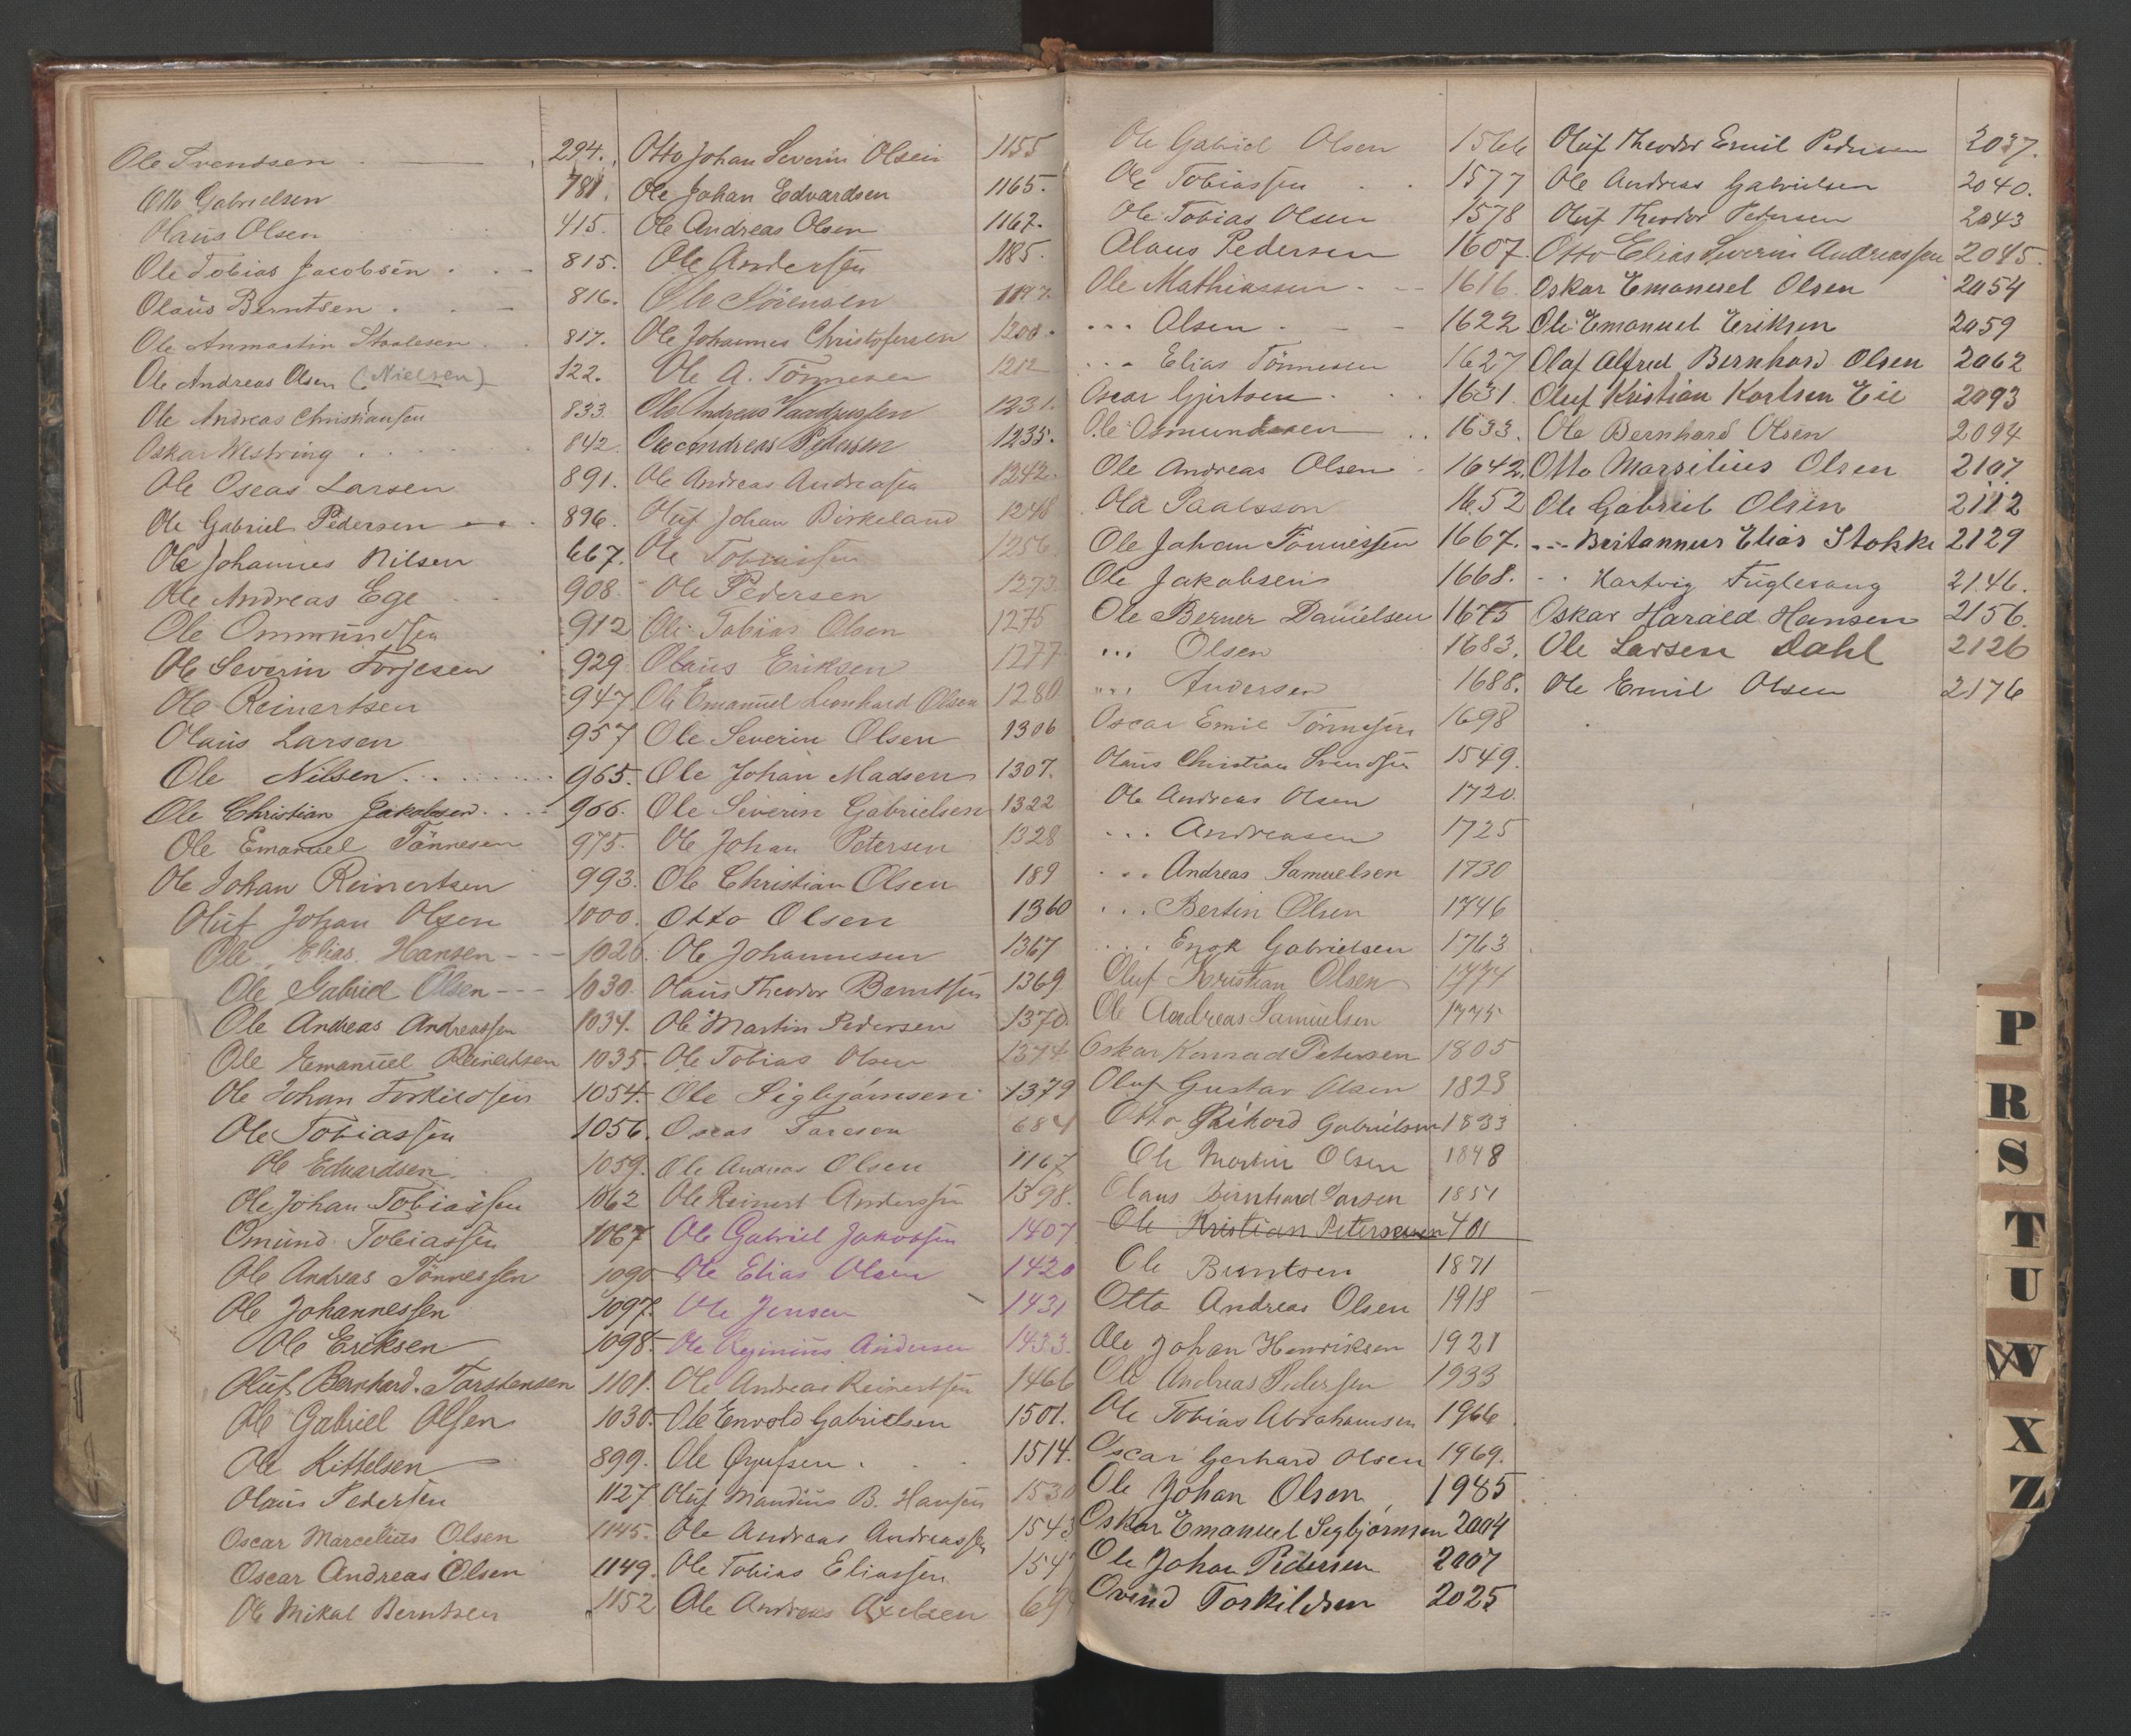 Ole Svendsen 294.
Otto Gabrielsen 781.
Olaus Olsen 415.
Ole Tobias Jacobsen 815.
Olaus Berntsen 816.
Ole Anmartin Staalesen 817.
Ole Andreas Olsen (Nielsen) 122.
Ole Andreas Christiansen 833
Oskar Westring 842.
Ole Oseas Larsen 891.
Ole Gabriel Pedersen 896.
Ole Johannes Nilsen 667.
Ole Andreas Ege 908.
Ole Ommundsen 912
Ole Severin Torjesen 929.
Ole Reinertsen 947.
Olaus Larsen 957
Ole Nilsen 965.
Ole Christian Jakobsen 966.
Ole Emanuel Tönnesen 975.
Ole Johan Reinertsen 993.
Oluf Johan Olsen 1000.
Ole Elias Hansen 1026.
Ole Gabriel Olsen 1030.
Ole Andreas Andreassen 1034.
Ole Emanuel Reinertsen 1035.
Ole Johan Torkildsen 1054
Ole Tobiassen 1056.
Ole Edvardsen 1059.
Ole Johan Tobiassen 1062
Omund Tobiassen 1067
Ole Andreas Tönnessen 1090
Ole Johannessen 1097.
Ole Eriksen 1098.
Oluf Bernhard Torstensen 1101.
Ole Gabriel Olsen 1030.
Ole Kittelsen 899.
Olaus Pedersen 1127
Oscar Marcelius Olsen 1145.
Oscar Andreas Olsen 1149.
Ole Mikal Berntsen 1152
Otto Johan Severin Olsen 1155
Ole Johan Edvardsen 1165.
Ole Andreas Olsen 1167.
Ole Andersen 1185.
Ole Sörensen
Ole Johannes Christofersen 1200.
Ole A. Tönnesen 1212
Ole Andreas 1231.
Ole Andreas Pedersen 1235.
Ole Andreas Andreasen 1242.
Oluf Johan Birkeland 1248
Ole Tobiassen 1256
Ole Pedersen 1273
Ole Tobias Olsen 1275
Olaus Eriksen 1277
Ole Emanuel Leonhard Olsen 1280
Ole Severin Olsen 1306
Ole Johan Madsen 1307.
Ole Severin Gabrielsen 1322
Ole Johan Petersen 1328
Ole Christian Olsen 189
Otto Olsen 1360
Ole Johannesen 1367
Olaus Theodor Berntsen 1369
Ole Martin Pedersen 1370.
Ole Tobias Olsen 1374
Ole Sigbjörnsen 1379
Oseas Larsen 684
Ole Andreas Olsen 1167
Ole Reinert Anderssen 1398.
Ole Gabriel Jakobsen 1407
Ole Elias Olsen 1420
Ole Jensen 1431
Ole Reginius Andersen 1433.
Ole Andreas Reinertsen 1466
Ole Envold Gabrielsen 1501.
Ole 1514.
Oluf Mandius B. Hansen 1530
Ole Andreas Andreassen 1543
Ole Tobias Eliassen 154
Ole Andreas Axelsen 69
Ole Gabriel Olsen 1566
Ole Tobiassen 1577
Ole Tobias Olsen 1578
Olaus Pedersen 1607
Ole Mathiassen 1616.
... Olsen 1622
... Elias Tönnesen 1627
Oscar Gjertsen 1631.
Ole Osmundsen 1633.
Ole Andreas Olsen 1642.
Ola Paalsson 1652
Ole Johan Tönnessen 1667.
Ole Jakobsen 1668.
Ole Berner Danielsen 1675
... Olsen 1683.
... Andersen 1688.
Oscar Emil Tönnesen 1698
Olaus Christian Svendsen 1549.
Ole Andreas Olsen 1720.
... Andreasen 1725
... Andreas Samuelsen 1730
... Bertin Olsen 1746
... Enok Gabrielsen 1763
Oluf Kristian Olsen 1774
Ole Andreas Samuelsen 1775
Oskar Konrad Petersen 1805
Oluf Gustav Olsen 1823
Otto Rikord Gabrielsen 1833
Ole Martin Olsen 1848
Olaus Bernhard Larsen 1851
Ole Kristian Petersen 401
Ole Berntsen 1871
Otto Andreas Olsen 1918
Ole Johan Henriksen 1921
Ole Andreas Pedersen 1933
Ole Tobias Abrahamsen 1966
Oscar Gerhard Olsen 1969.
Ole Johan Olsen 1985
Oskar Emanuel Segbjörnsen 2004
Ole Johan Pedersen 2007
Ovind Torkildsen 2025
Oluf Theodor Emil Pedersen 2037.
Ole Andreas Gabrielsen 2040.
Oluf Theodor Pedersen 2043
Otto Elias Severin Andreassen 2045.
Oskar Emanuel Olsen 2054
Ole Emanuel Eriksen 2059
Olaf Alfred Bernhard Olsen 2062
Oluf Kristian Karlsen Eie 2093
Ole Bernhard Olsen 2094
Otto Marsilius Olsen 2107
Ole Gabriel Olsen 2112
... Britannus Elias Stokke 2129
.. Hartvig Fuglevang 2146.
Oskar Harald Hansen 2156.
Ole Larsen Dahl 2126
Ole Emil Olsen 2176
P
R
S
T
U
W
X
Z